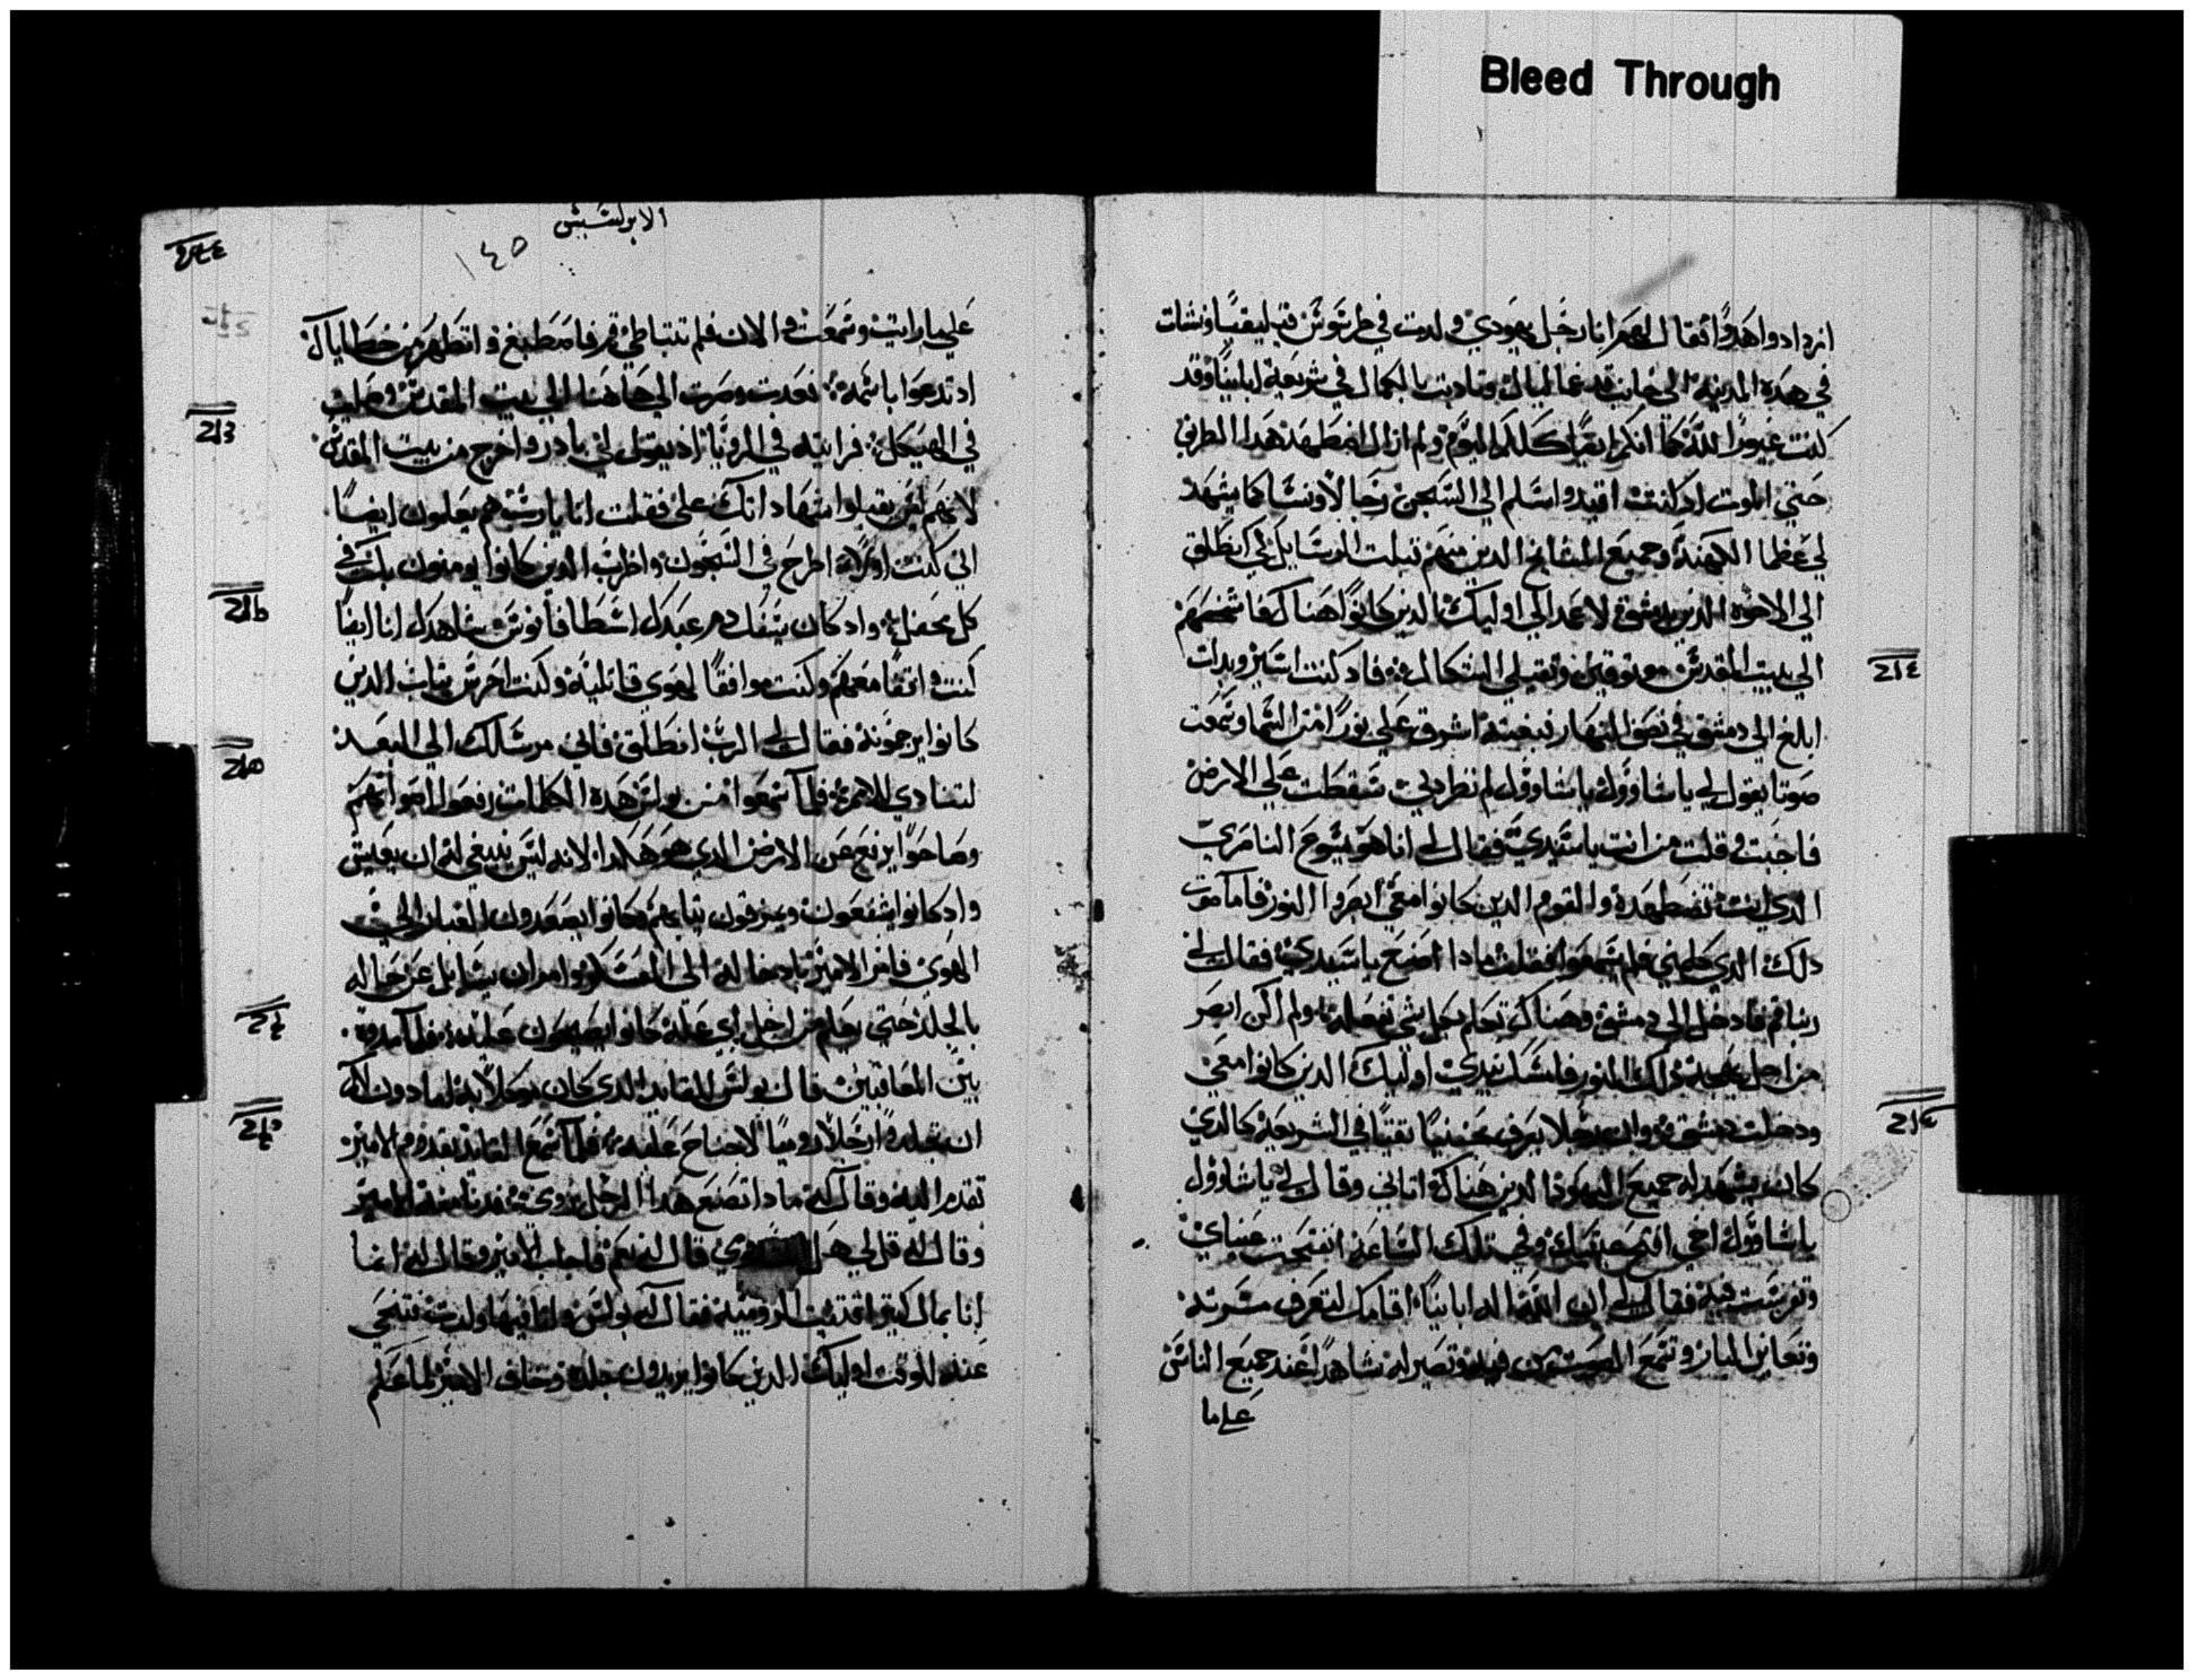 Bleed Through
ازدادوا هدوًا فقال لهم انا رجل يهودي ولدت في طرسوس قيليقيا ونشات
في هذه المدينة الى جانب قدمي غمالياك وتادبت بالكمال في شريعة اباينا وقد
كنت غيورا لله كما انكم ايضا كلكم اليوم ولم ازال اضطهد هدا الطريق
حتي الموت اد كنت اقيد واسلم الي السجن رجالا ونسا كما يشهد
لي عظما الكهنة وجميع المشايخ الدين منهم قبلت الرسايل لكي انطلق
الي الاخوة الدين بدمشق لاعمد الي اوليك الدين كانوا هناك فاشخصهم
الي بيت المقدس موتوقين وتقبلي النكال فاد كنت اسير وبدات
ابلغ الي دمشق في نصف النهار فبغتة اشرق علي نورا من السما وسمعت
صوتا يقول لي ياشاوول ياشاوول لم تطردني فسقطت علي الارض
فاجبت وقلت من انت ياسيدي فقال لي انا هو يسوع الناصري
الدي انت تضطهده والقوم الدين كانوا معي ابصروا النور فاما صوت
دلك الدي كلمني فلم يسمعوا فقلت مادا اصنع ياسيدي فقال لي
ربنا قم فادخل الي دمشق وهناك تعلم بكل شي تفعله ولم اكن ابصر
من اجل بهجة دلك النور فامسك بيدي اوليك الدين كانوا معي
ودخلت دمشق وان رجلا يعرف بحننيا تقيا في الشريعة كالدي
كان يشهد له جميع اليهود الدين هناك اتاني وقال لي ياشاوول
ياشاوول اخي افتح عينيك وفي تلك الساعة انفتحت عيناي
وتفرست فيه فقال لي ان الله اله اباينا اقامك لتعرف مسرته
وتعاين البار وتسمع الصوت من فيه وتصير له شاهدا عند جميع الناس
علي ما
الابركسيس
١٤٥
علي ما رايت وسمعت والان فلم تتباطي قم فاصطبغ واتطهر من خطاياك
اد تدعوا باسمه فعدت وصرت الي هاهنا الي بيت المقدس وصليت
في الهيكل فرايته في الرويا اد يقول لي بادر واخرج من بيت المقدس
لانهم لن يقبلوا شهادتك علي فقلت انا يارب هم يعلمون ايضا
اني كنت اولا اطرح في السجون واضرب الدين كانوا يومنون بك في
كل محفل واد كان يسفك دم عبدك اسطافانوس شاهدك انا ايضا
كنت واقفا معهم وكنت موافقا لهوي قاتليه وكنت احرس تياب الدين
كانوا يرجمونه فقال لي الرب انطلق فاني مرسلك الي البعد
لتنادي للامم فلما سمعوا من بولس هده الكلمات رفعوا اصواتهم
وصاحوا يرفع عن الارض الدي هو هكدا لانه ليس ينبغي له ان يعيش
واد كانوا يشغعون ويمزقون تيابهم وكانوا يصعدون الغبار الي
الهوي فامر الامير بادخاله الي المعسكر وامر ان يسايل عن حاله
بالجلد حتي يعلم من اجل اي علة كانوا يصيحون عليه فلما مدوه
بين المعاقبين قال بولس للقايد الدي كان موكلا به لمادون لكم
ان تجلدوا رجلا روميا لا جناح عليه فلما سمع القايد تقدم الامير
تقدم اليه وقال له مادا تصنع هدا الرجل رومي فدنا منه الامير
وقال له قل لي هل رومي قال له نعم فاجاب الامير وقال له انما
انا بمال كتير اقتنيت الرومية فقال له بولس وانا فيها ولدت فتنحي
عنه للوقت اوليك الدين كانوا يريدون جلده وخاف الامير لما علم